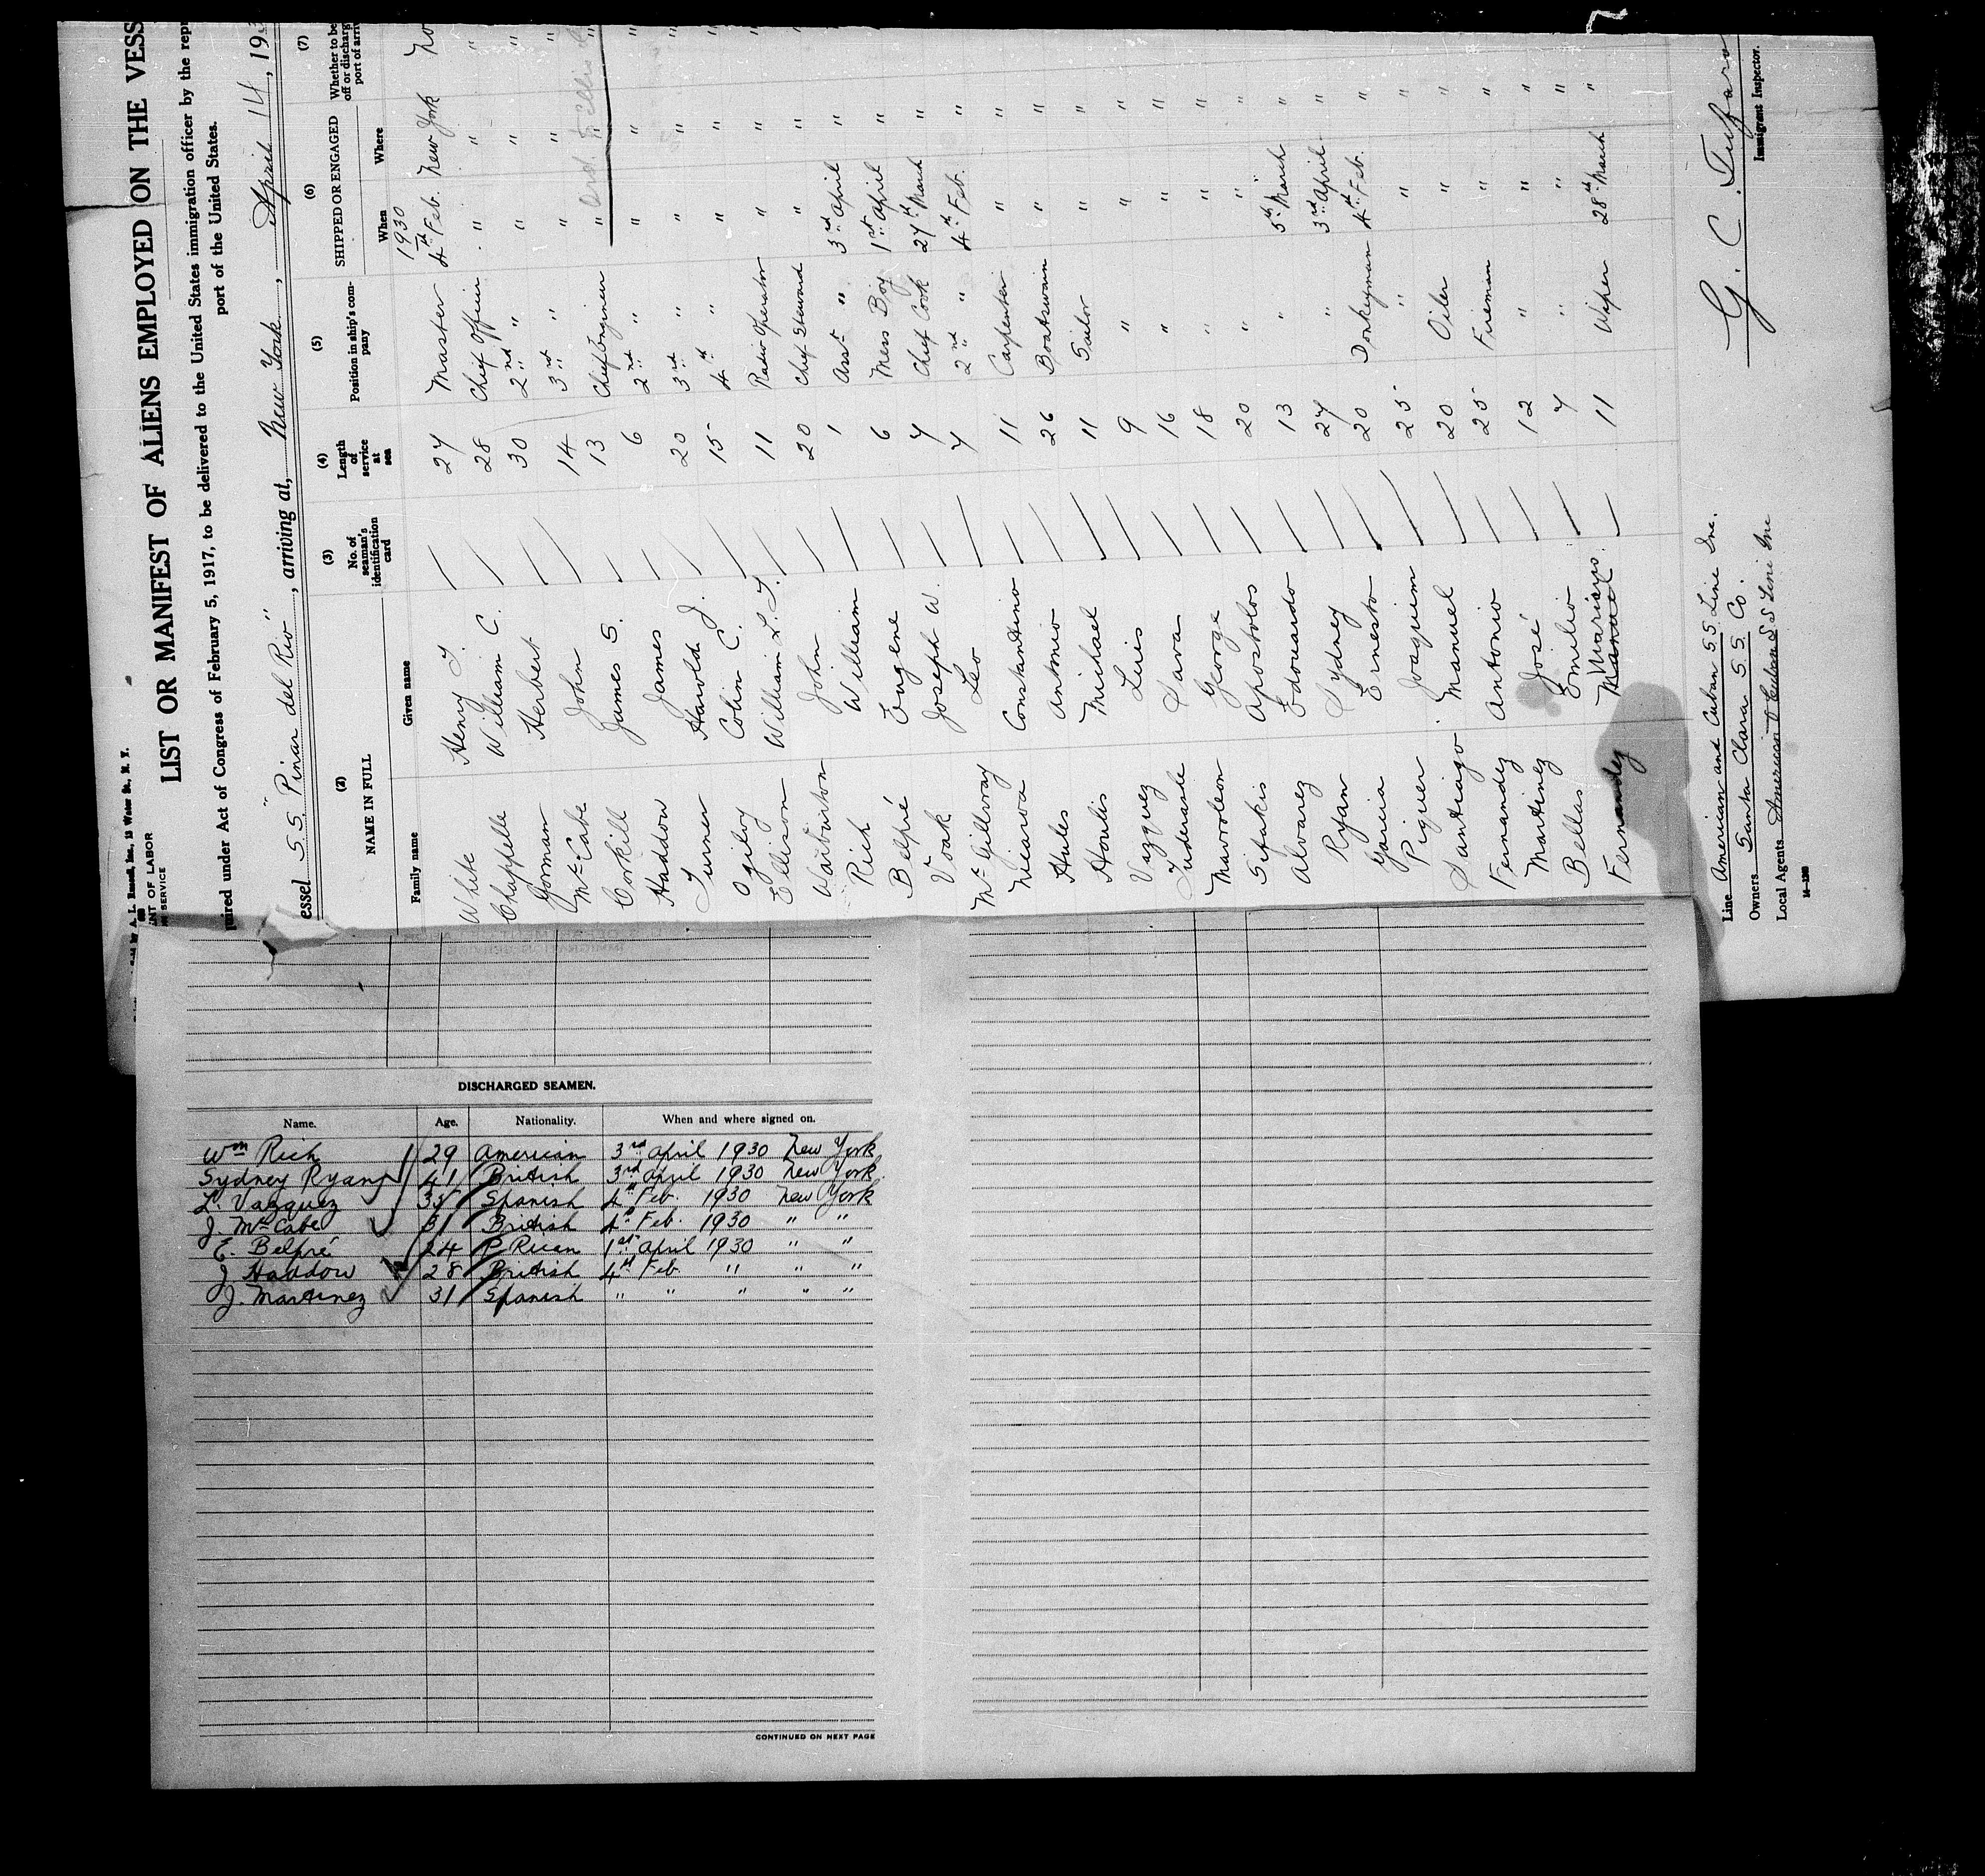 Sold by A. L. Russell, Inc., 19 Water St., N. Y.
ENT OF LABOR
SERVICE
LIST OR MANIFEST OF ALIENS EMPLOYED ON THE VESS
quired under Act of Congress of February 5, 1917, to be delivered to the United States immigration officer by the repr
port of the United States.
essel S.S. "Pinar del Rio", arriving at, New York, April 14, 193
(2) (3) (4) (5) (6) (7)
NAME IN FULL No. of seaman's identification card Length of service at sea Position in ship's company SHIPPED OR ENGAGED Whether to be off or discharg port of arriv
Family name Given name When Where
1930
White Henry T. 27 Master 4th Feb. New York No
Chappelle William C. 28 Chief Officer " " "
Gorman Herbert 30 2nd " " " "
McCabe John 14 3rd " " " "
Corkill James S. 13 Chief Engineer " " "
Haddow James 6 2nd " " " "
Turner Harold J. 20 3rd " " " "
Ogilvy Colin C. 15 4th " " " "
Ellison William L. T. 11 Radio Operator " " "
Warburton John 20 Chief Steward " " "
Rich William 1 Asst " 3rd April " "
Belpré Eugene 6 Mess Boy 1st April " "
Voak Joseph W. 7 Chief Cook 27th March " "
McGillvray Leo 7 2nd " 4th Feb. " "
Neiarova Constantino 11 Carpenter " " "
Hules Antonio 26 Boatswain " " "
Houlis Michael 11 Sailor " " "
Vazquez Luis 9 " " " "
Tuderashe Sava 16 " " " "
Mavroleon George 18 " " " "
Sifakis Apostolos 20 " " " "
Alvarez Edouardo 13 " 5th March " "
Ryan Sydney 27 " 3rd April " "
Garcia Ernesto 20 Donkeyman 4th Feb. " "
Piquer Joaquim 25 " " " "
Santiago Manuel 20 Oiler " " "
Fernandez Antonio 25 Fireman " " "
Martinez José 12 " " " "
Bellas Emilio 7 " " " "
Fernandez Manuel 11 Wiper 28th March " "
Line American and Cuban S.S. Line Inc.
Owners Santa Clara S S Co.
Local Agents American & Cuban S S Line Inc
14-1200
G. C.
Immigrant Inspector.
DISCHARGED SEAMEN.
Name. Age. Nationality. When and where signed on.
Wm Rich 29 American 3rd April 1930 New York
Sydney Ryan 41 British 3rd April 1930 New York
L. Vazquez 35 Spanish 4th Feb. 1930 New York
J. McCabe 31 British 4th Feb. 1930 " "
E. Belpré 24 P. Rican 1st April 1930 " "
J Haddow 28 British 4th Feb. " " "
J. Martinez 31 Spanish " " " " "
CONTINUED ON NEXT PAGE